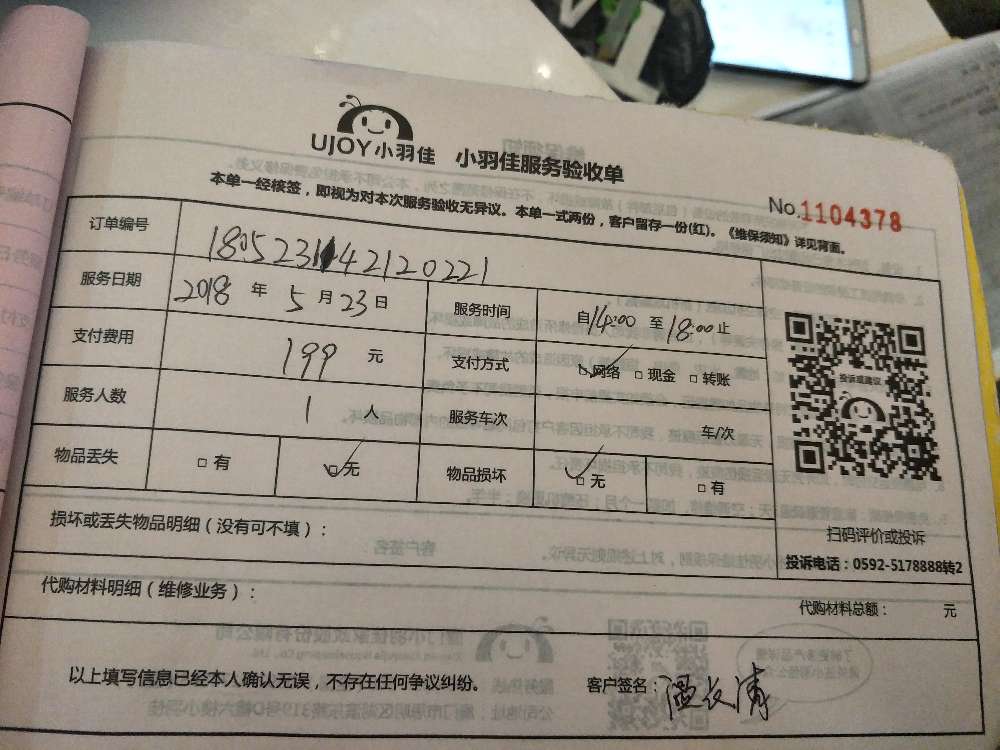 UJOY小羽佳 小羽佳服务验收单
No.1104378
本单一经核签，即视为对本次服务验收无异议。本单一式两份，客户留存一份(红)。《维保须知》详见背面。
订单编号
服务日期 2018 年 5 月 23 日 服务时间 自14:00 至18:00止
支付费用 199 元 支付方式 □网络 □现金 □转账
服务人数 1 人 服务车次 车/次
物品丢失 □有 □无 物品损坏 □无 □有
投诉或建议
扫码评价或投诉
投诉电话：0592-5178888转2
损坏或丢失物品明细（没有可不填）：
代购材料明细（维修业务）：
代购材料总额： 元
以上填写信息已经本人确认无误，不存在任何争议纠纷。 客户签名：温长清